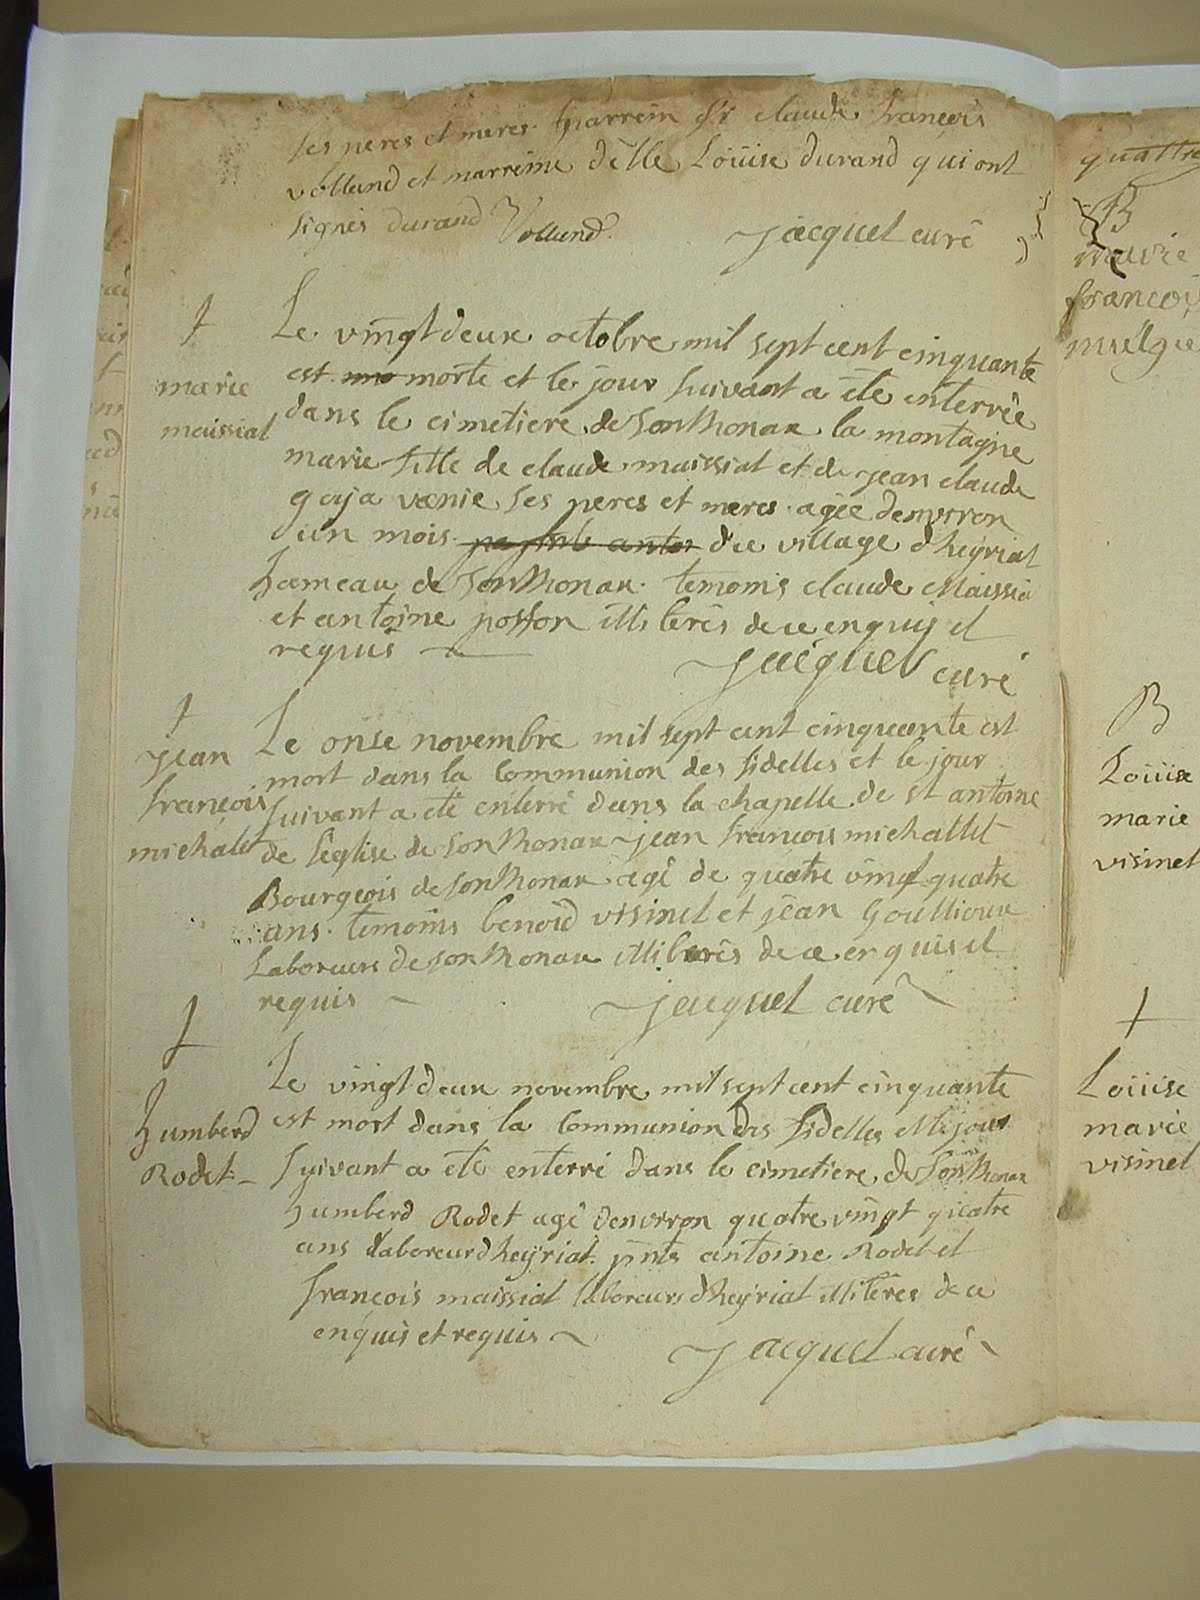 ses peres et meres parrein sr claude françois
volland et marreine dêlle Loüise durand qui ont
signés durand Vollund.
jacquet curé
†
marie
maissiat
Le vingtdeux octobre mil sept cent cinquante
est morte et le jour suivant a été enterrée
dans le cimetiere de sonthonax la montagne
marie fille de claude maissiat et de jean claude
goyja vænie ses peres et meres agée denvirron
un mois du village dheyriat
hameau de sonthonax. temoins claude Maissia
et antoine posson illiterés de ce enquis et
requis
jacquet curé
†
jean
françois
michalet
Le onse novembre mil sept cent cinquante est
mort dans la communion des fidelles et le jour
suivant a eté enterré dans la chapelle de st antoine
de l'eglise de sonthonax jean françois michallet
Bourgeois de sonthonax agé de quatre vingt quatre
ans. temoins benoid visinet et jean Goullioux
Laboreurs de sonthonax illiterés de ce enquis et
requis
jacquet curé
†
humberd
Rodet
Le vingtdeux novembre mil sept cent cinquante
est mort dans la communion des fidelles et le jour
suivant a eté enterré dans le cimetiere de Sonthonax
humberd Rodet agé denvirron quatre vingt quatre
ans laboreur dheyriat. pnts antoine Rodet et
françois maissiat laboreurs dheyriat illiteres de ce
enquis et requis
jacquet curé
quattre
B
marie
françoi
B
Loüise
marie
visinet
†
Loüise
marie
visinet